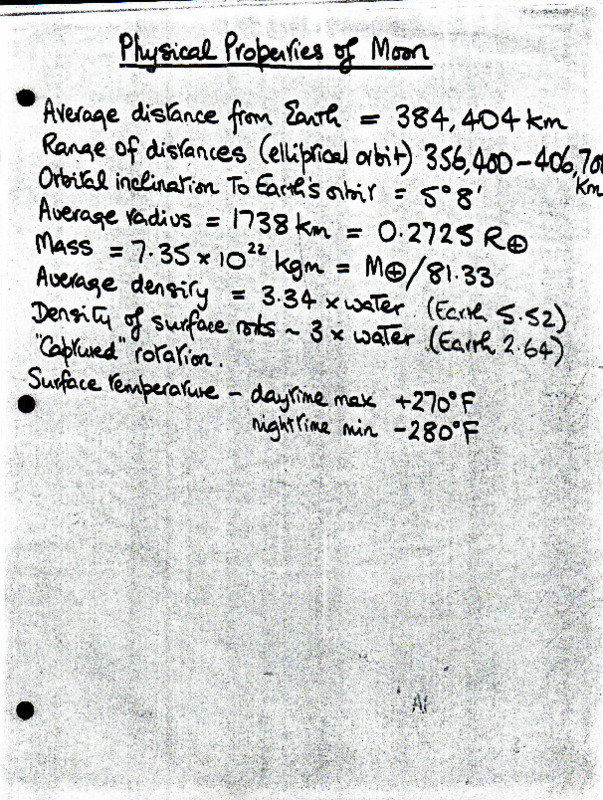 Physical Properties of Moon
Average distance from Earth = 384,404 km
Range of distances (elliptical orbit) 356,400-406,70
km
Orbital inclination To Earth's orbit = 5°8'
Average radius = 1738 km = 0.2725 R⊕
Mass = 7.35 x 10²² kgm = M⊕/81.33
Average density = 3.34 x water (Earth 5.52)
Density of surface rocks ~ 3 x water (Earth 2.64)
"Captured" rotation.
Surface temperature - daytime max +270°F
nighttime min -280°F